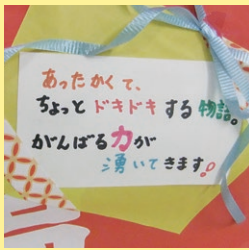 あったかくて、
ちょっとドキドキする物語。
がんばる力が
湧いてきます!